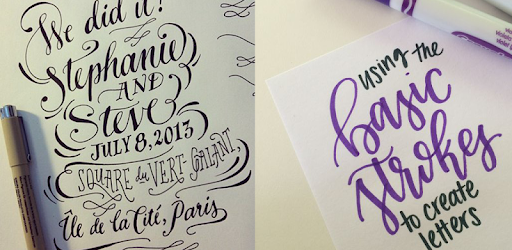 We did it!
Stephanie
AND
Steve
JULY 8, 2013
SQUARE du VERT-GALANT
Île de la Cité, Paris
using the
basic
strokes
to create
letters